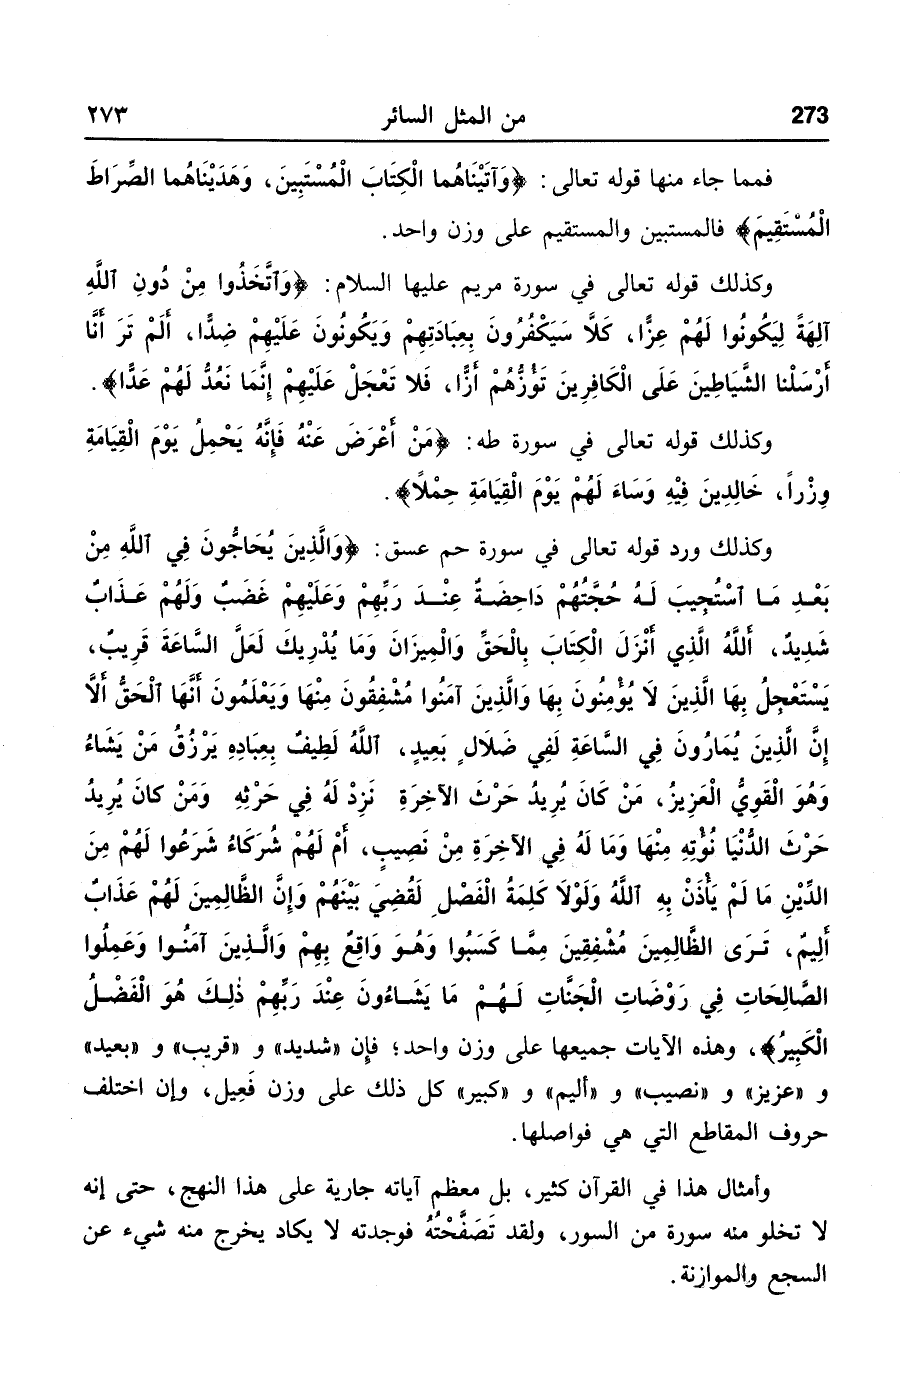 273 من المثل السائر ٢٧٣
فمما جاء منها قوله تعالى: ﴿وَآتَيْنَاهُما الْكِتَابَ الْمُسْتَبِينَ، وَهَدَيْنَاهُما الصِّرَاطَ
الْمُسْتَقِيمَ﴾ فالمستبين والمستقيم على وزن واحد.
وكذلك قوله تعالى في سورة مريم عليها السلام: ﴿وَٱتَّخَذُوا مِنْ دُونِ ٱللَّهِ
آلِهَةً لِيَكُونُوا لَهُمْ عِزًّا، كَلَّا سَيَكْفُرُونَ بِعِبَادَتِهِمْ وَيَكُونُونَ عَلَيْهِمْ ضِدًّا، أَلَمْ تَرَ أَنَّا
أَرْسَلْنا الشَّيَاطِينَ عَلَى الْكَافِرِينَ تَؤُزُّهُمْ أَزًّا، فَلا تَعْجَلْ عَلَيْهِمْ إِنَّمَا نَعُدُّ لَهُمْ عَدًّا﴾.
وكذلك قوله تعالى في سورة طه: ﴿مَنْ أَعْرَضَ عَنْهُ فَإِنَّهُ يَحْمِلُ يَوْمَ الْقِيَامَةِ
وِزْراً، خَالِدِينَ فِيْهِ وَسَاءَ لَهُمْ يَوْمَ الْقِيَامَةِ حِمْلاً﴾.
وكذلك ورد قوله تعالى في سورة حم عسق: ﴿وَالَّذِينَ يُحَاجُّونَ فِي ٱللَّهِ مِنْ
بَعْدِ مَا ٱسْتُجِيبَ لَهُ حُجَّتُهُمْ دَاحِضَةٌ عِنْدَ رَبِّهِمْ وَعَلَيْهِمْ غَضَبٌ وَلَهُمْ عَذَابٌ
شَدِيدٌ، أَللَّهُ الَّذِي أَنْزَلَ الْكِتَابَ بِالْحَقِّ وَالْمِيزَانَ وَمَا يُدْرِيكَ لَعَلَّ السَّاعَةَ قَرِيبٌ،
يَسْتَعْجِلُ بِهَا الَّذِينَ لَا يُؤْمِنُونَ بِهَا وَالَّذِينَ آمَنُوا مُشْفِقُونَ مِنْهَا وَيَعْلَمُونَ أَنَّهَا ٱلْحَقُّ أَلَا
إِنَّ الَّذِينَ يُمَارُونَ فِي السَّاعَةِ لَفِي ضَلَالٍ بَعِيدٍ، ٱللَّهُ لَطِيفٌ بِعِبَادِهِ يَرْزُقُ مَنْ يَشَاءُ
وَهُوَ الْقَوِيُّ الْعَزِيزُ، مَنْ كَانَ يُرِيدُ حَرْثَ الآخِرَةِ نَزِدْ لَهُ فِي حَرْثِهِ وَمَنْ كانَ يُرِيدُ
حَرْثَ الدُّنْيَا نُؤْتِهِ مِنْهَا وَمَا لَهُ فِي الآخِرَةِ مِنْ نَصِيبٍ، أَمْ لَهُمْ شُرَكَاءُ شَرَعُوا لَهُمْ مِنَ
الدِّيْنِ مَا لَمْ يَأْذَنْ بِهِ ٱللَّهُ وَلَوْلَا كَلِمَةُ الْفَصْلِ لَقُضِيَ بَيْنَهُمْ وَإِنَّ الظَّالِمِينَ لَهُمْ عَذَابٌ
أَلِيمٌ، تَرَى الظَّالِمِينَ مُشْفِقِينَ مِمَّا كَسَبُوا وَهُوَ وَاقِعٌ بِهِمْ وَالَّذِينَ آمَنُوا وَعَمِلُوا
الصَّالِحَاتِ فِي رَوْضَاتِ الْجَنَّاتِ لَهُمْ مَا يَشَاءُونَ عِنْدَ رَبِّهِمْ ذٰلِكَ هُوَ الْفَضْلُ
الْكَبِيرُ﴾، وهذه الآيات جميعها على وزن واحد؛ فإن «شديد» و «قريب» و «بعيد»
و «عزيز» و «نصيب» و «أليم» و «كبير» كل ذلك على وزن فَعِيل، وإن اختلف
حروف المقاطع التي هي فواصلها.
وأمثال هذا في القرآن كثير، بل معظم آياته جارية على هذا النهج، حتى إنه
لا تخلو منه سورة من السور، ولقد تَصَفَّحْتُهُ فوجدته لا يكاد يخرج منه شيء عن
السجع والموازنة.